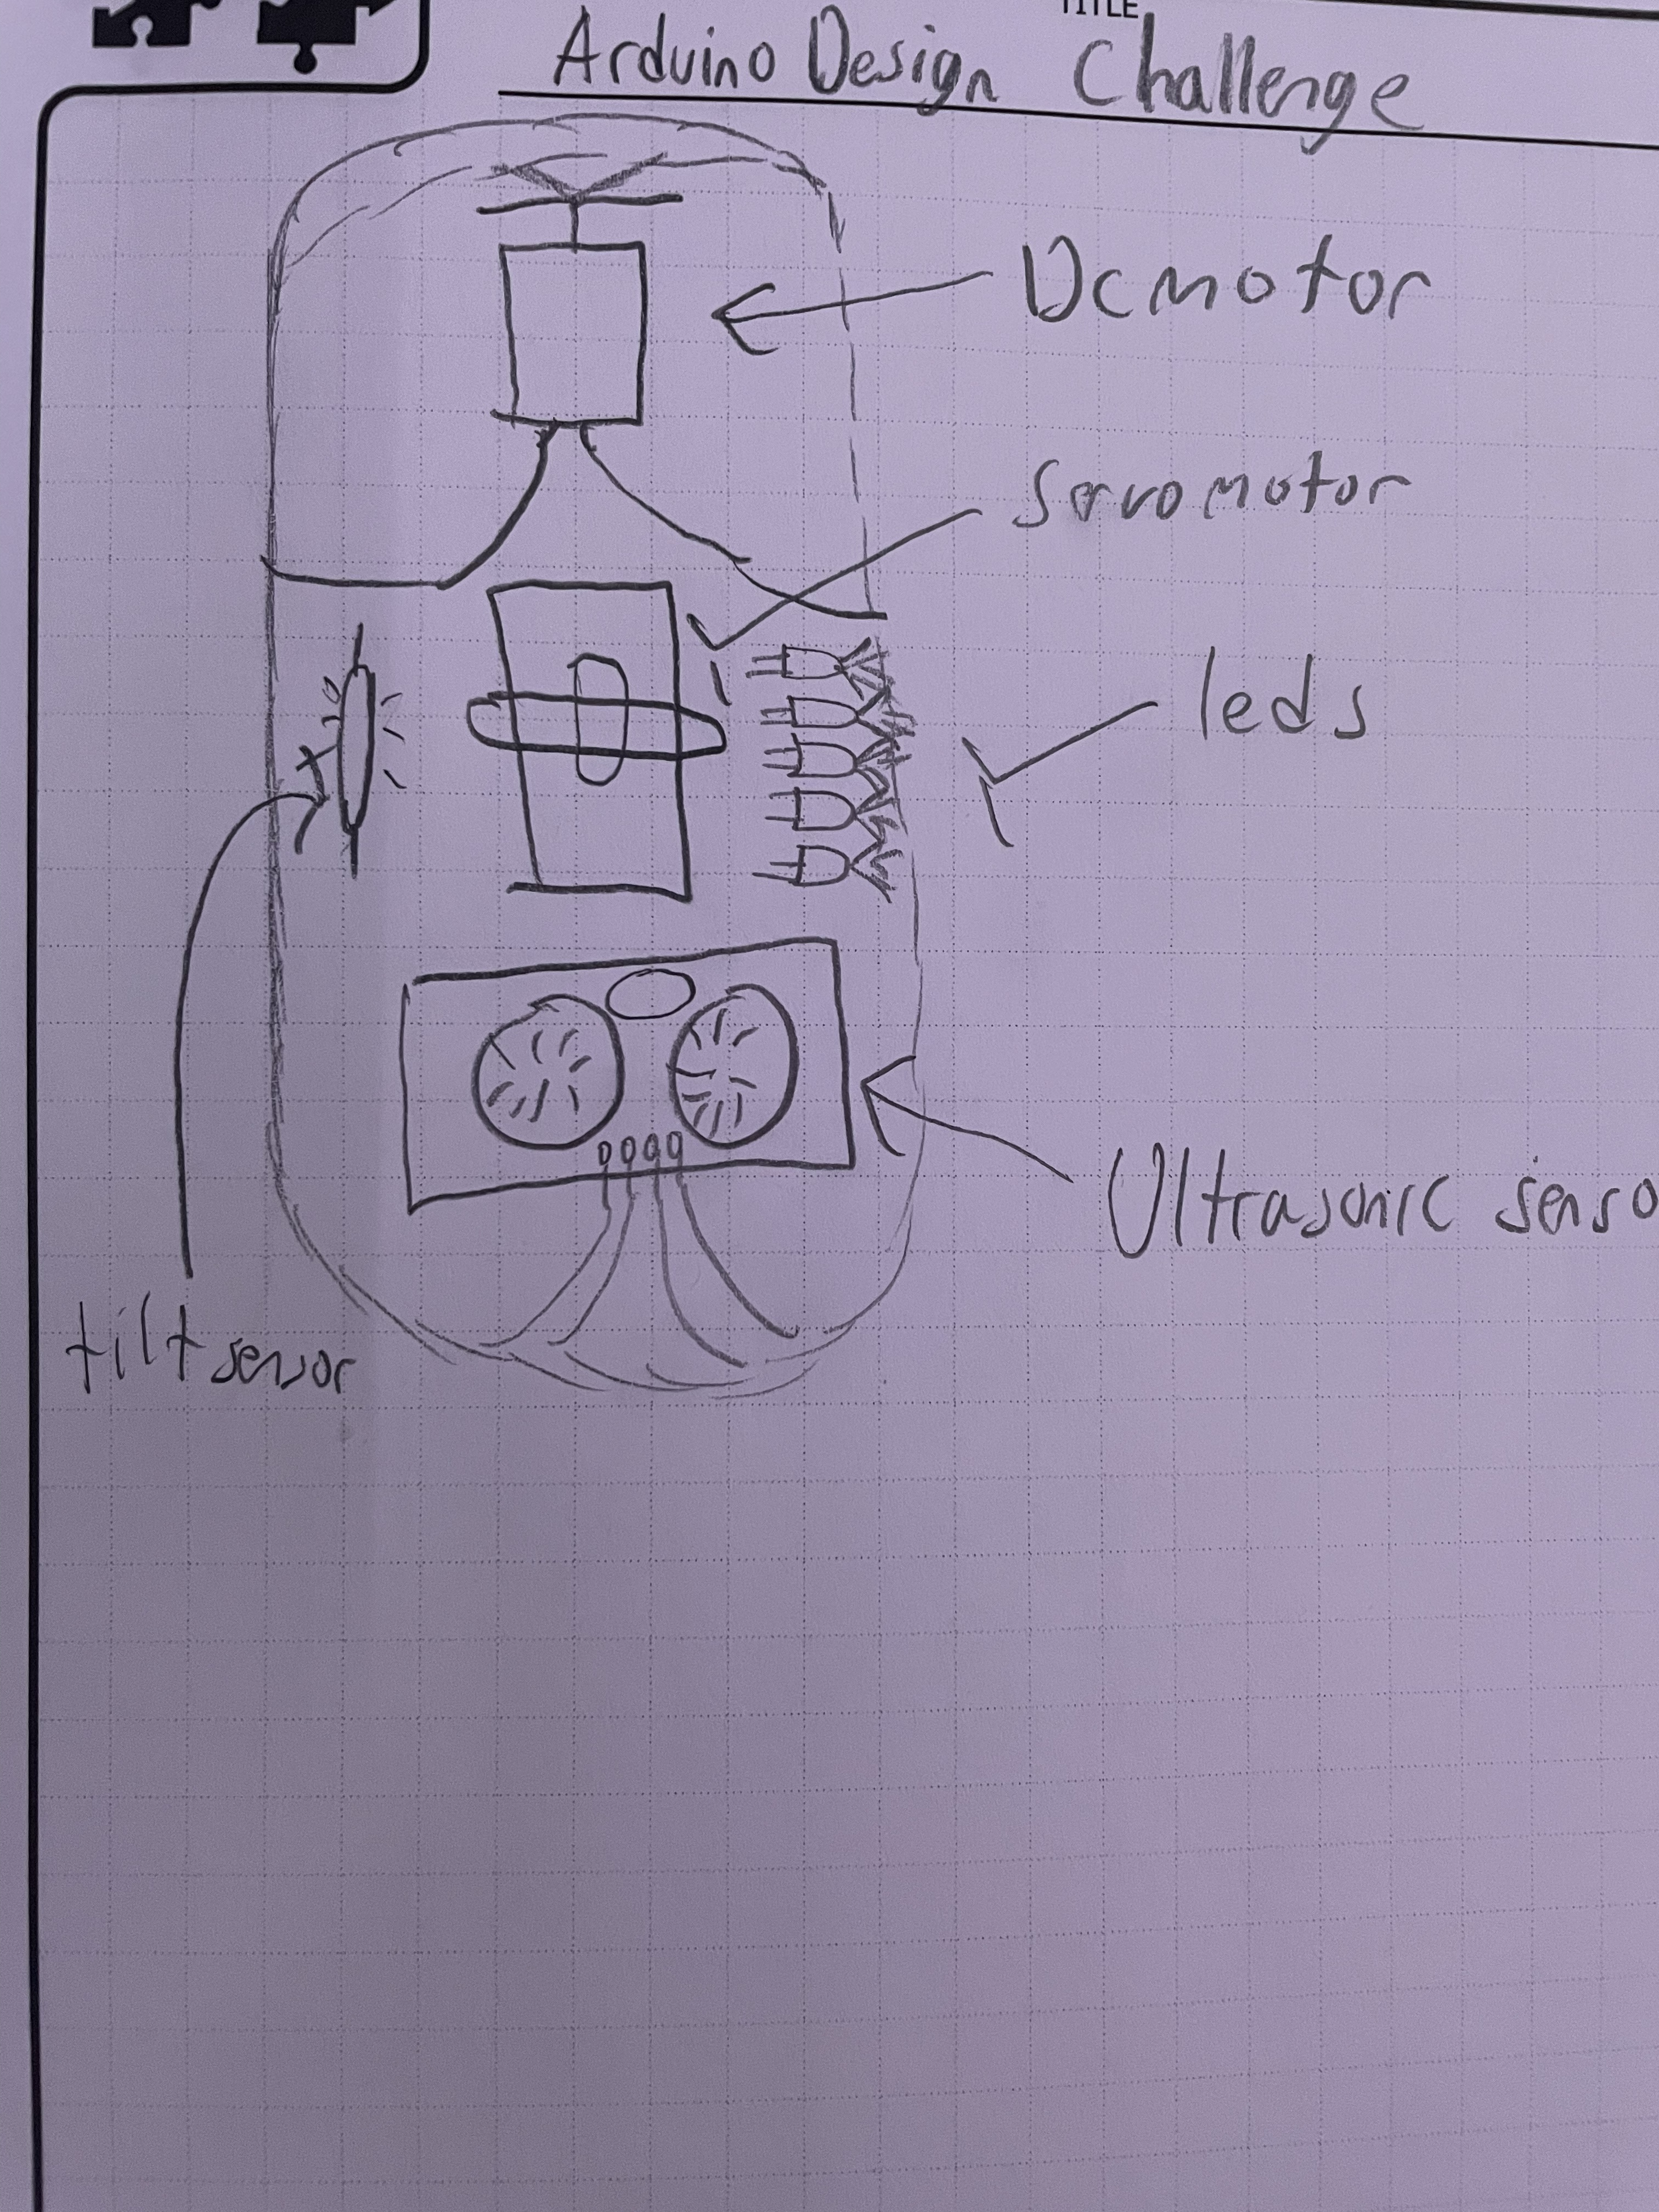 TITLE
Arduino Design Challenge
Dc motor
Servo motor
leds
Ultrasonic senso
tilt sensor